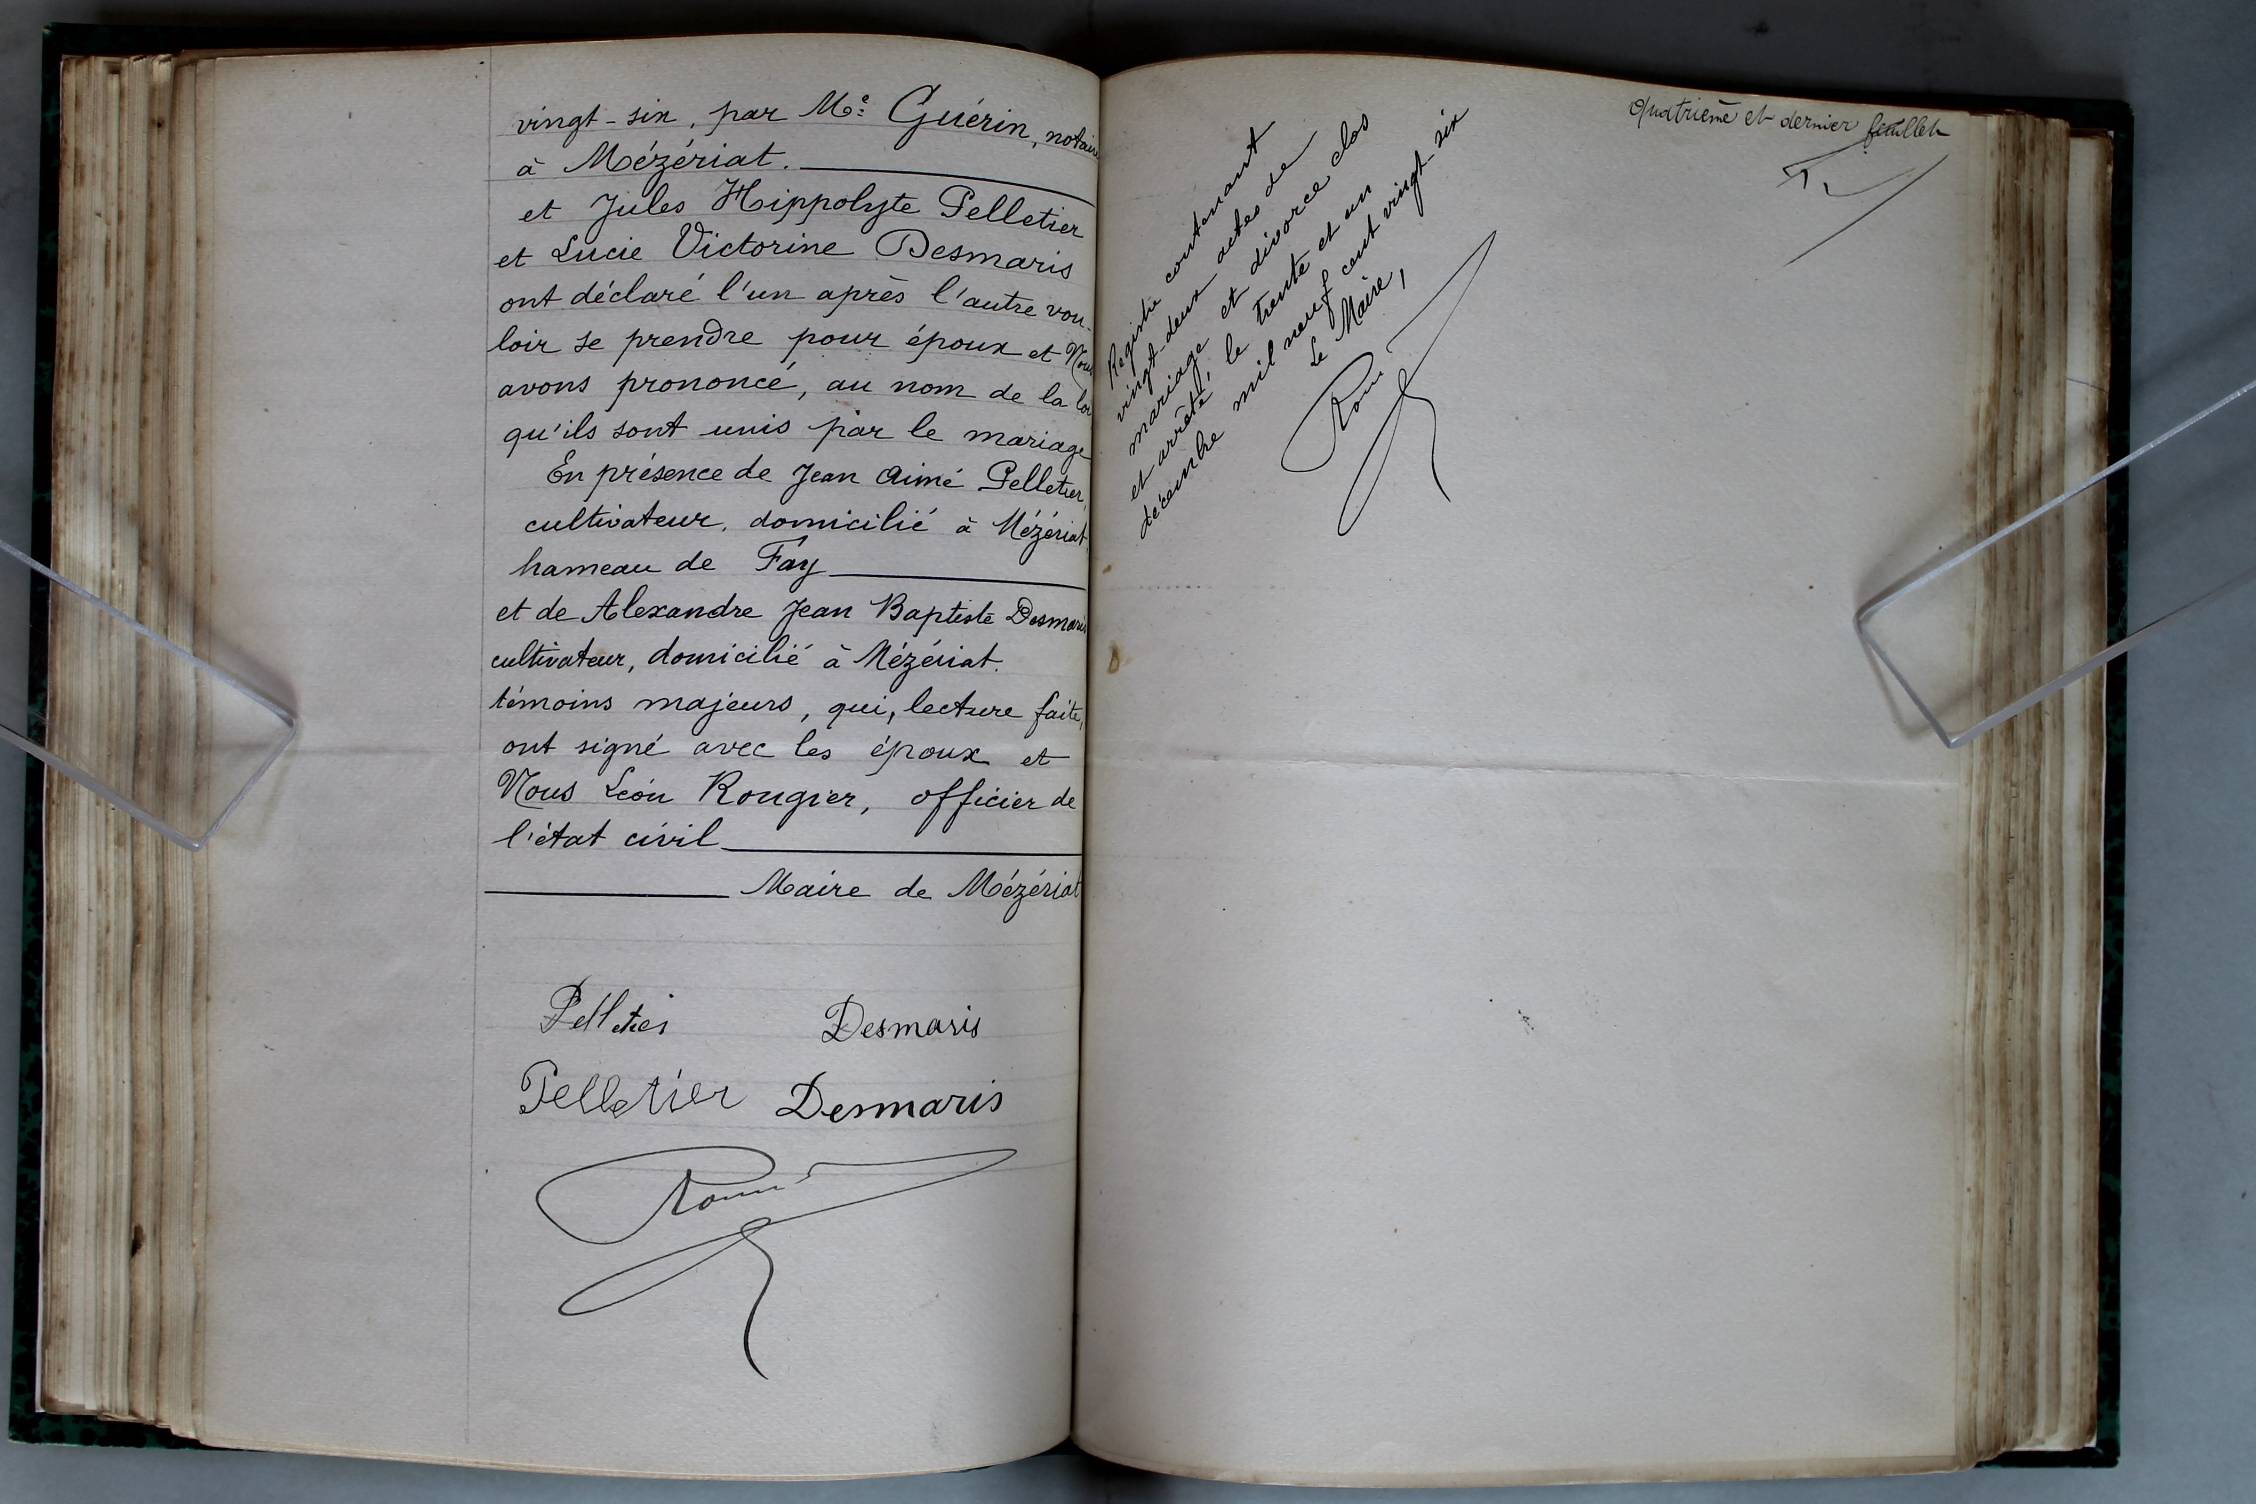 vingt-six, par Me Guérin, notaire
à Mézériat.
et Jules Hippolyte Pelletier
et Lucie Victorine Desmaris
ont déclaré l'un après l'autre vou-
loir se prendre pour époux et Nous
avons prononcé, au nom de la loi
qu'ils sont unis par le mariage
En présence de Jean Aimé Pelletier,
cultivateur, domicilié à Mézériat,
hameau de Fay
et de Alexandre Jean Baptiste Desmaris
cultivateur, domicilié à Mézériat.
témoins majeurs, qui, lecture faite,
ont signé avec les époux et
Nous Léon Rougier, officier de
l'état civil
Maire de Mézériat
Pelletier Desmaris
Pelletier Desmaris
Quatrième et dernier feuillet
Registre contenant
vingt-deux actes de
mariage et divorce clos
et arrêté, le trente et un
décembre mil neuf cent vingt-six
Le Maire,